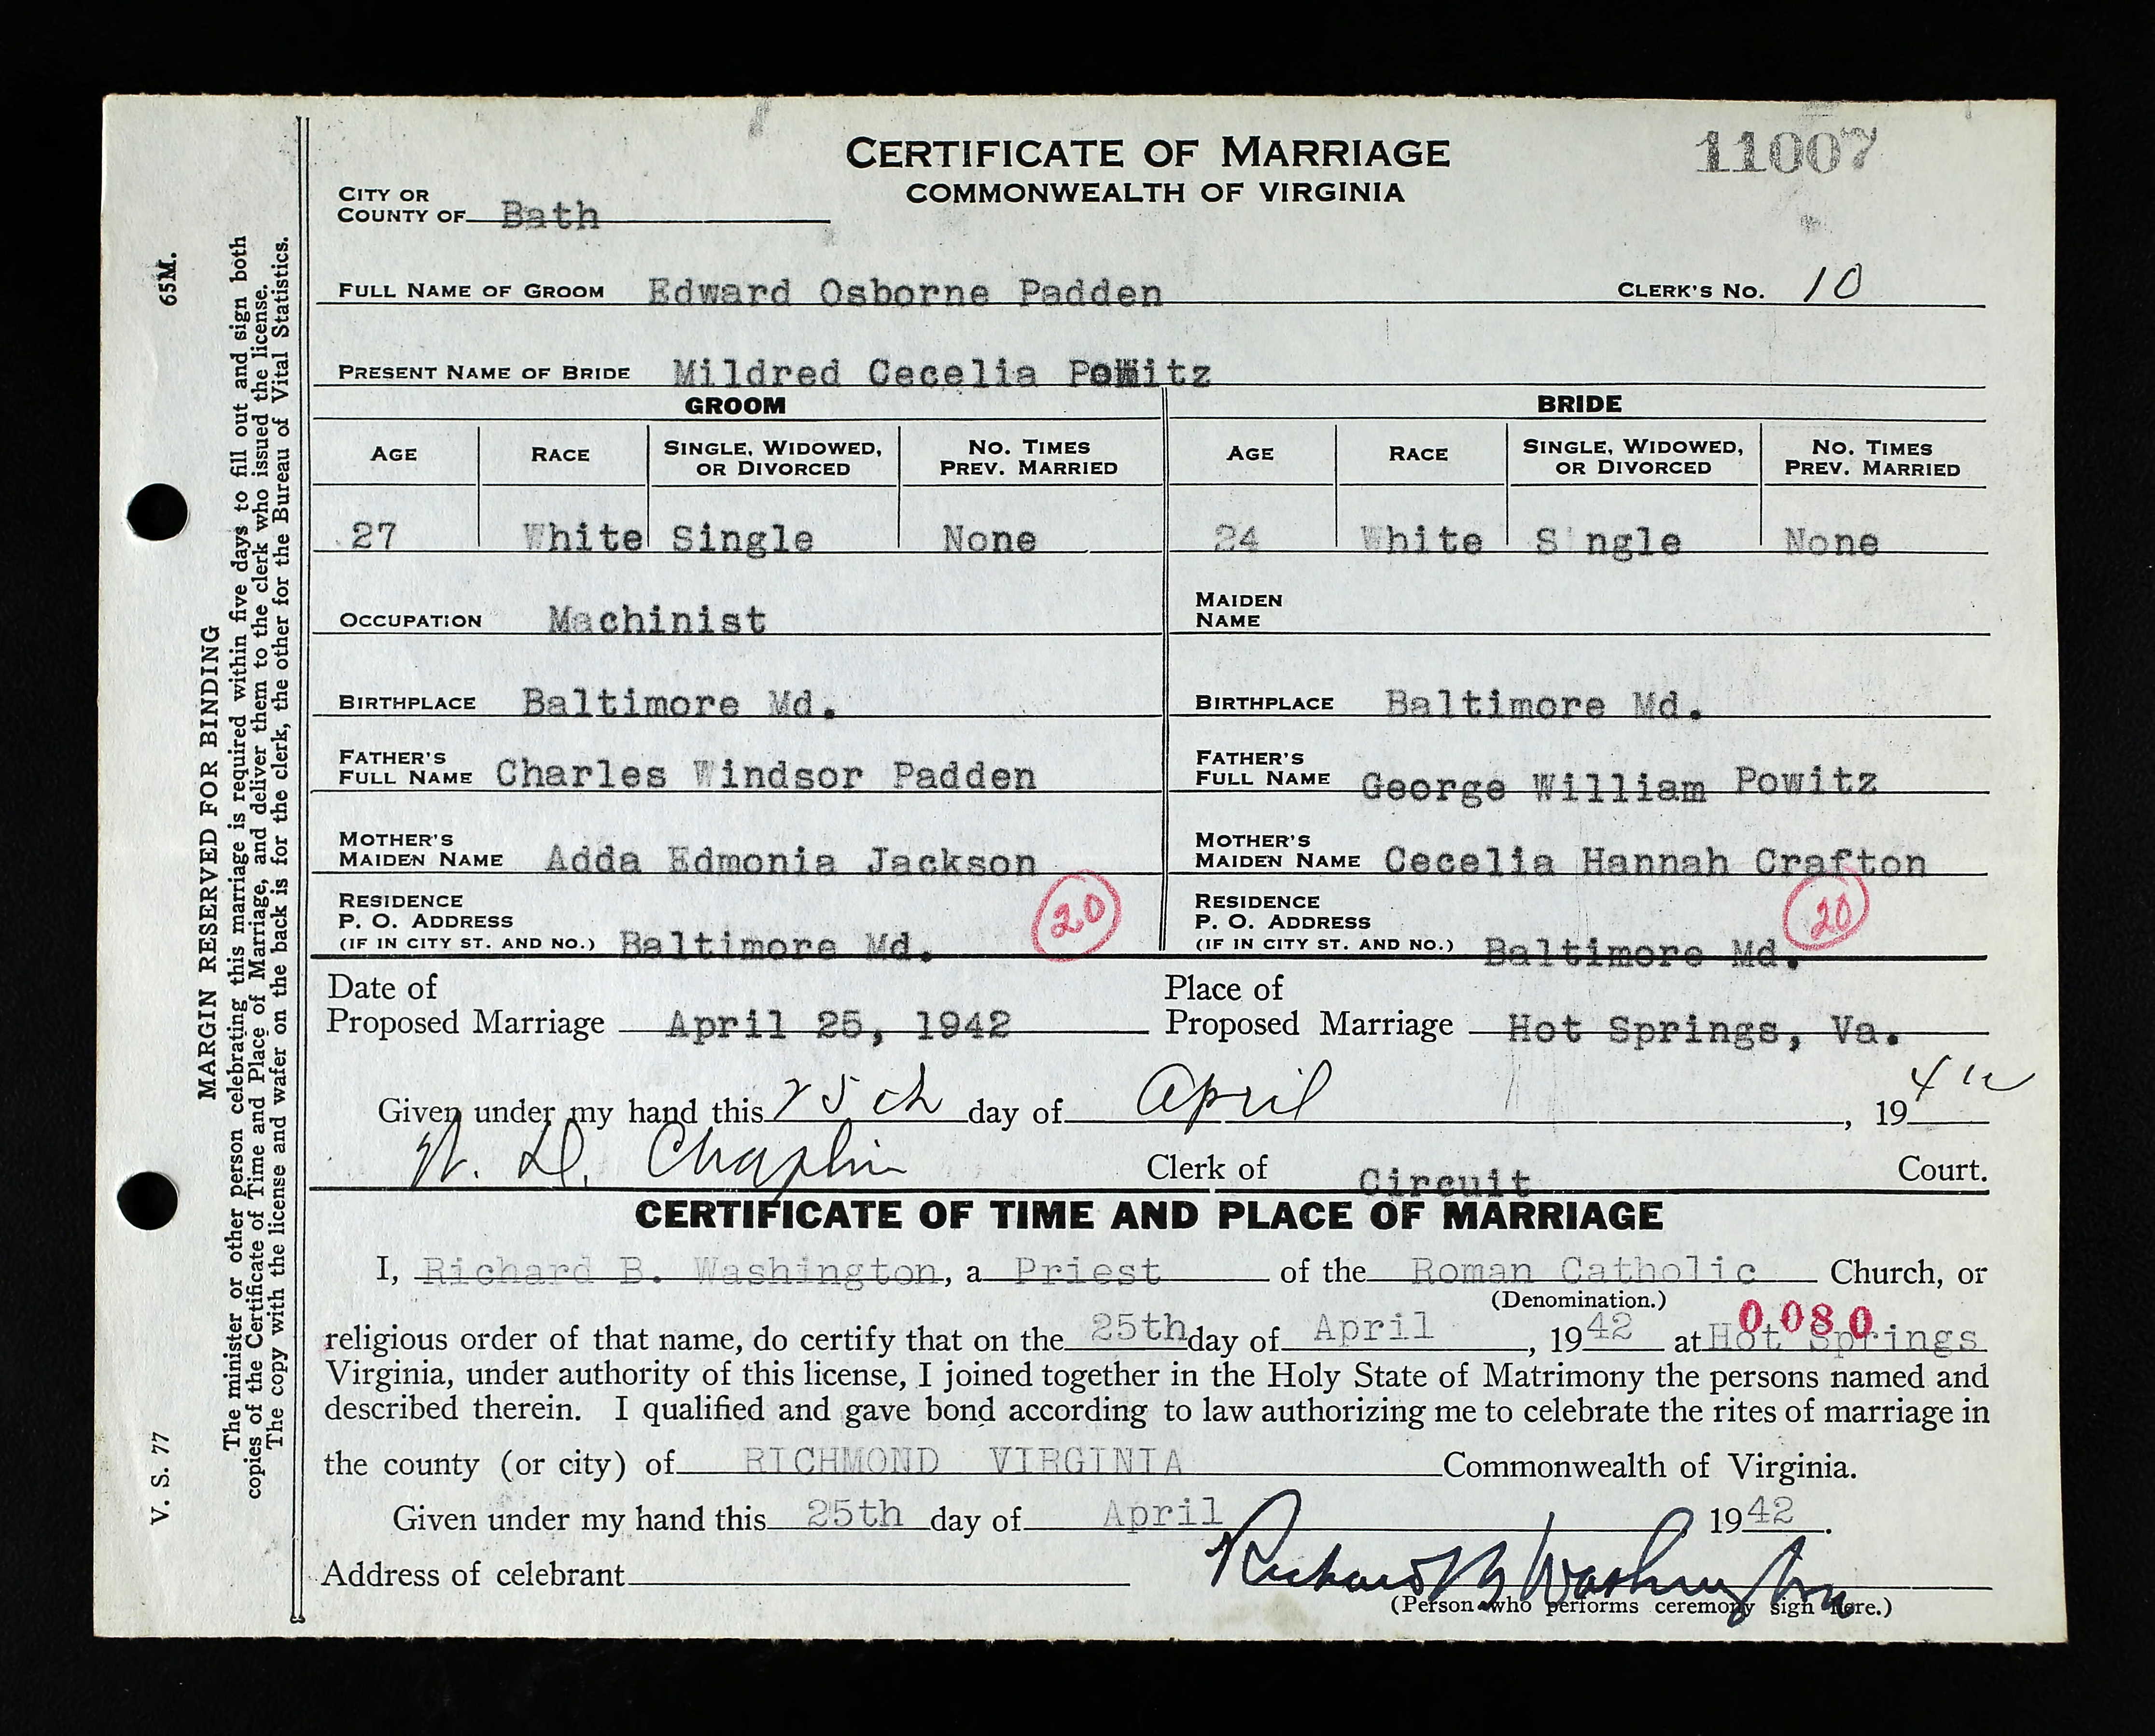 CERTIFICATE OF MARRIAGE
COMMONWEALTH OF VIRGINIA
11007
CITY OR
COUNTY OF Bath
FULL NAME OF GROOM Edward Osborne Padden CLERK'S NO. 10
PRESENT NAME OF BRIDE Mildred Cecelia Powitz
GROOM BRIDE
AGE RACE SINGLE, WIDOWED, OR DIVORCED NO. TIMES PREV. MARRIED AGE RACE SINGLE, WIDOWED, OR DIVORCED NO. TIMES PREV. MARRIED
27 White Single None 24 White S ngle None
OCCUPATION Machinist MAIDEN NAME
BIRTHPLACE Baltimore Md. BIRTHPLACE Baltimore Md.
FATHER'S FULL NAME Charles Windsor Padden FATHER'S FULL NAME George William Powitz
MOTHER'S MAIDEN NAME Adda Edmonia Jackson MOTHER'S MAIDEN NAME Cecelia Hannah Crafton
RESIDENCE P. O. ADDRESS (IF IN CITY ST. AND NO.) Baltimore Md. 20 RESIDENCE P. O. ADDRESS (IF IN CITY ST. AND NO.) Baltimore Md. 20
Date of Proposed Marriage April 25, 1942 Place of Proposed Marriage Hot Springs, Va.
Given under my hand this 25th day of April, 1942
Chaplin Clerk of Circuit Court.
CERTIFICATE OF TIME AND PLACE OF MARRIAGE
I, Richard B. Washington, a Priest of the Roman Catholic Church, or
(Denomination.)
0080
religious order of that name, do certify that on the 25th day of April, 1942 at Hot Springs
Virginia, under authority of this license, I joined together in the Holy State of Matrimony the persons named and
described therein. I qualified and gave bond according to law authorizing me to celebrate the rites of marriage in
the county (or city) of RICHMOND VIRGINIA Commonwealth of Virginia.
Given under my hand this 25th day of April 1942.
Address of celebrant Richard B Washington
(Person who performs ceremony sign here.)
65M.
MARGIN RESERVED FOR BINDING
The minister or other person celebrating this marriage is required within five days to fill out and sign both
copies of the Certificate of Time and Place of Marriage, and deliver them to the clerk who issued the license.
The copy with the license and wafer on the back is for the clerk, the other for the Bureau of Vital Statistics.
V. S. 77